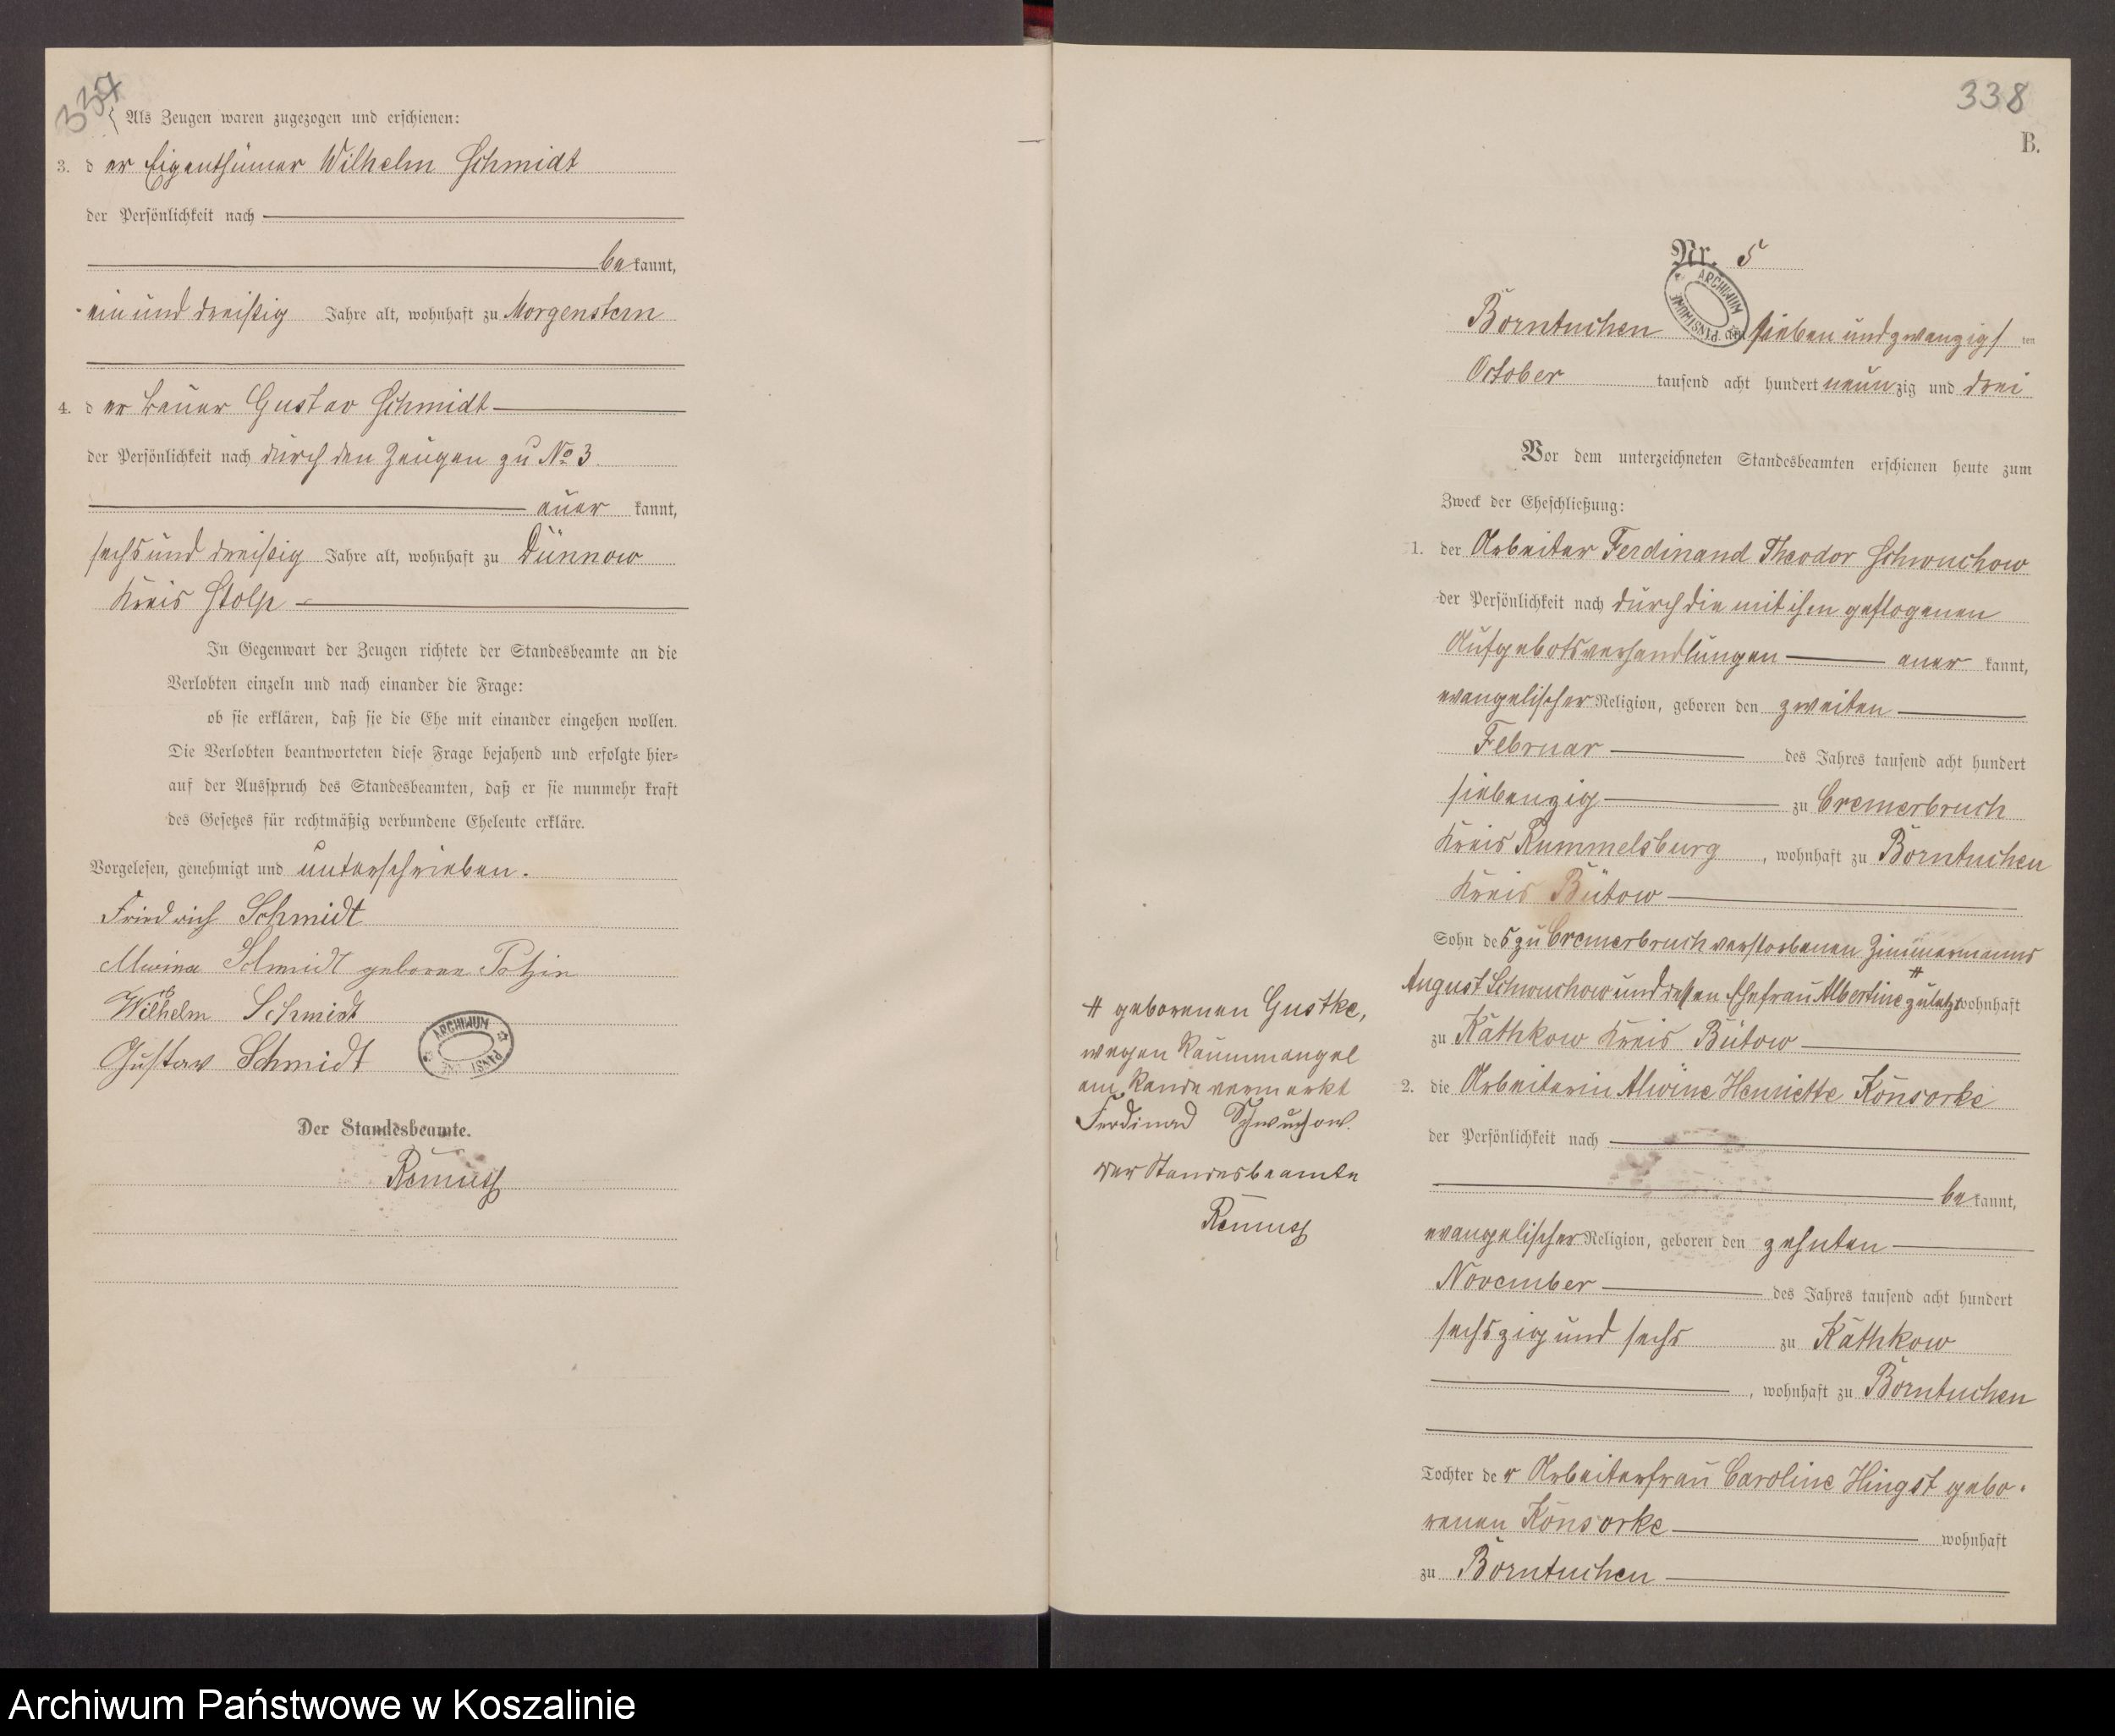 337
Als Zeugen waren zugezogen und erschienen:
3. der Eigenthümer Wilhelm Schmidt
der Persönlichkeit nach
bekannt,
ein und dreißig Jahre alt, wohnhaft zu Morgenstern
4. der Bauer Gustav Schmidt
der Persönlichkeit nach durch den Zeugen zu No 3.
aner kannt,
sechs und dreißig Jahre alt, wohnhaft zu Dünnow
Kreis Stolp
In Gegenwart der Zeugen richtete der Standesbeamte an die
Verlobten einzeln und nach einander die Frage:
ob sie erklären, daß sie die Ehe mit einander eingehen wollen.
Die Verlobten beantworteten diese Frage bejahend und erfolgte hier-
auf der Ausspruch des Standesbeamten, daß er sie nunmehr kraft
des Gesetzes für rechtmäßig verbundene Eheleute erkläre.
Vorgelesen, genehmigt und unterschrieben.
Friedrich Schmidt
Schmidt geborene
Wilhelm Schmidt
Gustav Schmidt
ARCHIWUM
Der Standesbeamte.
Remus
338
B.
Nr. 5
ARCHIWUM PAŃSTWOWE
Borntuchen am sieben und zwanzigsten
October tausend acht hundert neunzig und drei
Vor dem unterzeichneten Standesbeamten erschienen heute zum
Zweck der Eheschließung:
1. der Arbeiter Ferdinand Theodor Schwuchow
der Persönlichkeit nach durch die mit ihm gepflogenen
Aufgebotsverhandlungen aner kannt,
evangelischer Religion, geboren den zweiten
Februar des Jahres tausend acht hundert
siebenzig zu Cremerbruch
Kreis Rummelsburg, wohnhaft zu Borntuchen
Kreis Bütow
Sohn des zu Cremerbruch verstorbenen Zimmermanns
August Schwuchow und dessen Ehefrau Albertine # zuletzt wohnhaft
zu Kathkow Kreis Bütow
# geborenen Gustke,
wegen Raummangel
am Rande vermerkt
Ferdinad Schwuchow.
Der Standesbeamte
Remus
2. die Arbeiterin Alwine Henriette Konsorke
der Persönlichkeit nach
bekannt,
evangelischer Religion, geboren den zehnten
November des Jahres tausend acht hundert
sechszig und sechs zu Kathkow
, wohnhaft zu Borntuchen
Tochter der Arbeiterfrau Caroline Hingst gebo-
renen Konsorke wohnhaft
zu Borntuchen
Archiwum Państwowe w Koszalinie